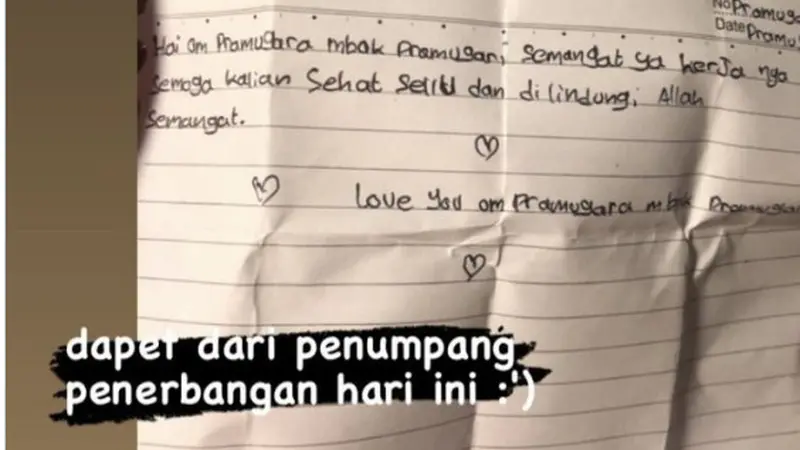 No Pramuga
Date Pramu
Hai om Pramugara mbak Pramugari, semangat ya kerja nya
semoga kalian Sehat Selalu dan dilindungi Allah
Semangat.
Love you om Pramugara mbak Pramugari
dapet dari penumpang
penerbangan hari ini :')